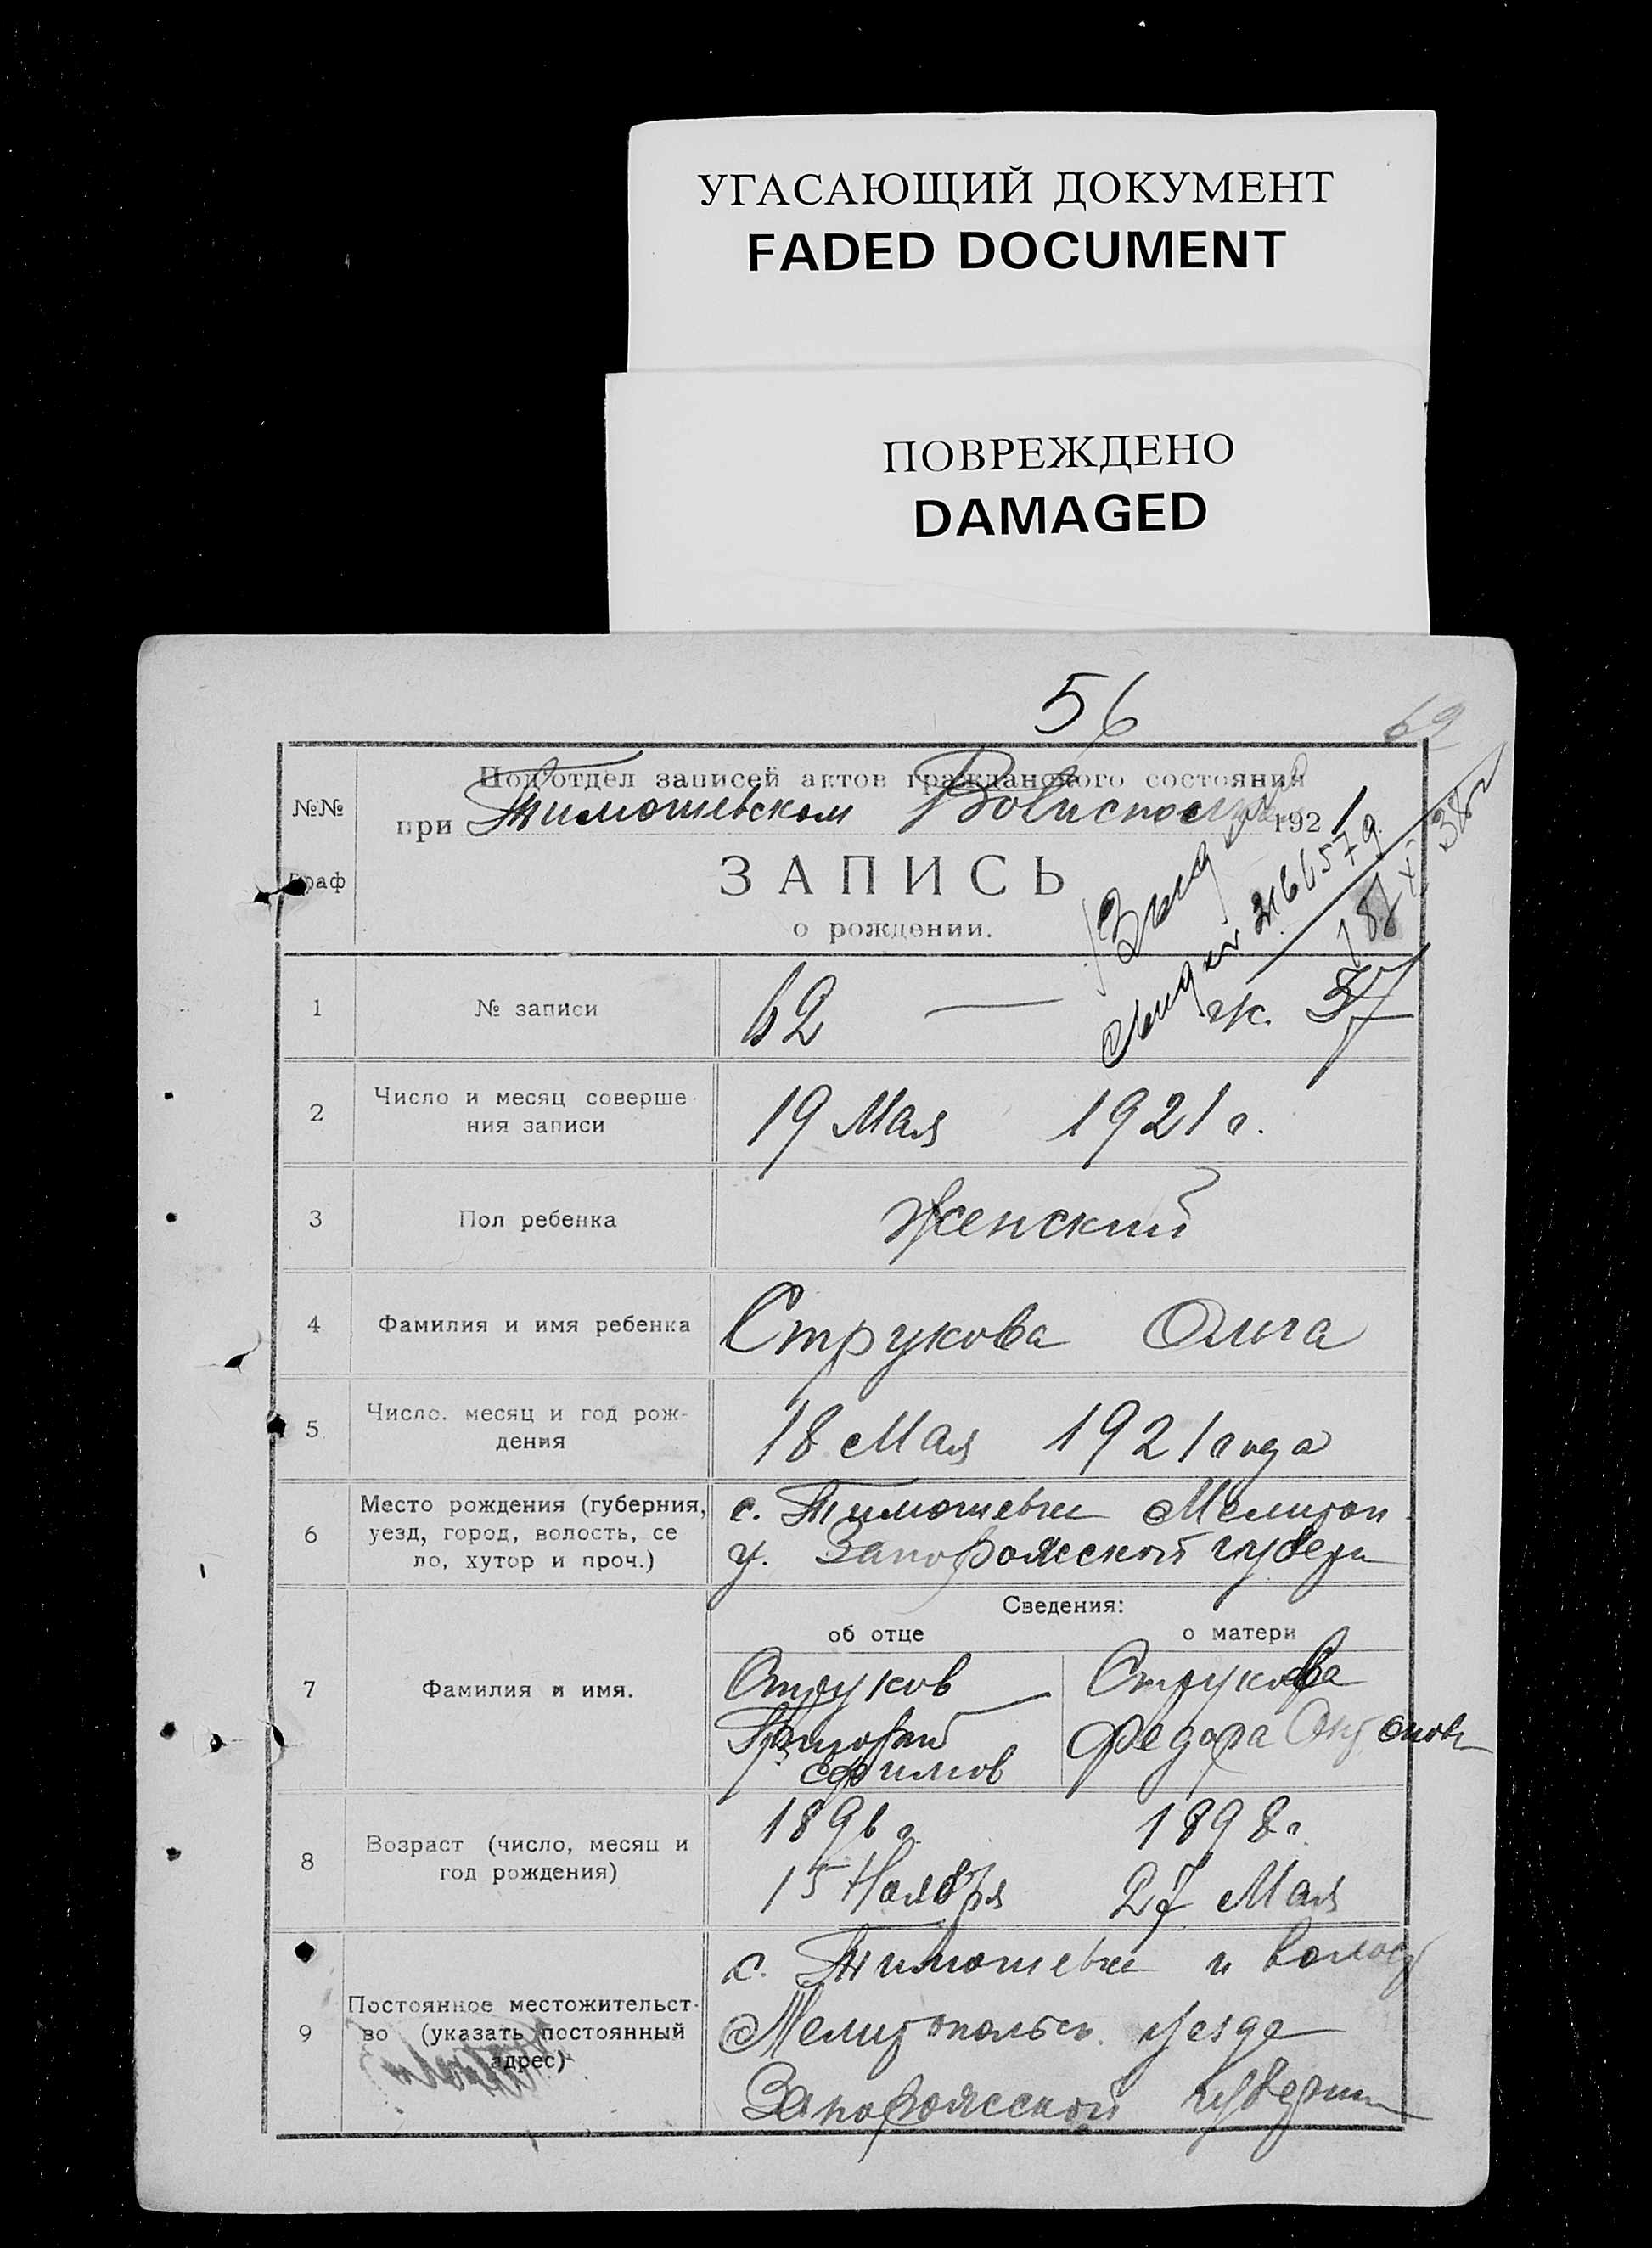 УГАСАЮЩИЙ ДОКУМЕНТ
FADED DOCUMENT
ПОВРЕЖДЕНО
DAMAGED
56
62
№№
граф
Подотдел записей актов гражданского состояния
при Тимошевском Волисполкоме 1921
ЗАПИСЬ
о рождении.
1 № записи 62
2 Число и месяц соверше-
ния записи
19 Мая 1921 г.
3 Пол ребенка Женский
4 Фамилия и имя ребенка Струкова Ольга
5 Число. месяц и год рож-
дения
18 Мая 1921 года
6 Место рождения (губерния,
уезд, город, волость, се
ло, хутор и проч.)
с. Тимошевки Мелитоп.
у. Запорожской губерн
Сведения:
об отце о матери
7 Фамилия и имя.
Струков
Григорий
Ефимов
Струкова
Федора Антонов
8 Возраст (число, месяц и
год рождения)
1896 г.
15 Ноября
1898 г.
27 Мая
9 Постоянное местожительст-
во (указать постоянный
адрес)
с. Тимошевки и волост
Мелитопольск. уезда
Запорожской губернии